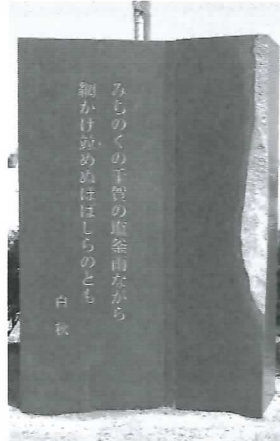 みちのくの千賀の塩釜雨ながら
網かけ竝めぬほばしらのとも
白秋